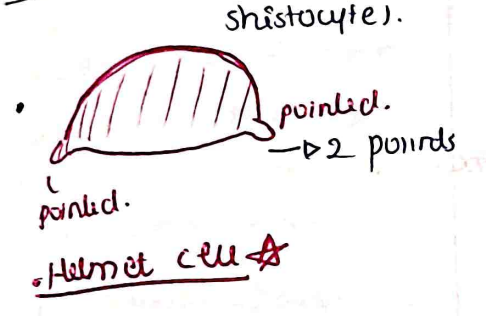 shistocyte).
pointed.
→ 2 points
pointed.
• Helmet cell ☆